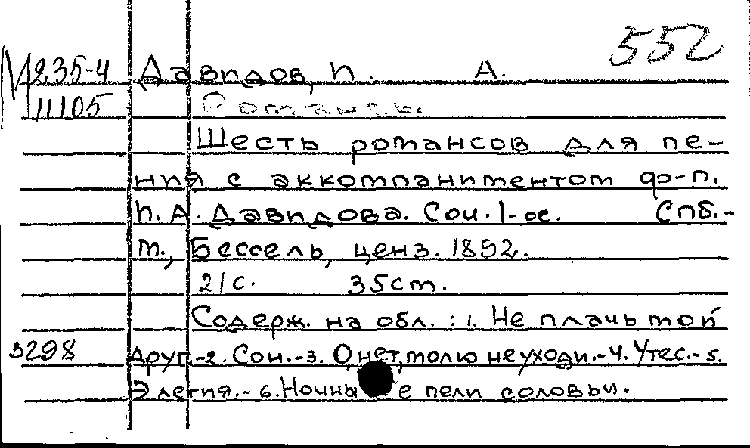 552
М 235-4 Давидов, П. А.
11105 Романсы.
Шесть романсов для пе-
ния с аккомпаниментом ф-п.
П. А. Давидова. Соч. 1-ое. Спб.-
м., Бессель, ценз. 1892.
21с. 35cm.
Содерж. на обл.: 1. Не плачь мой
3298 друг.-2. Сон.-3. О, нет, молю не уходи.-4. Утес.-5.
Элегия.-6. Ночны е пели соловьи.